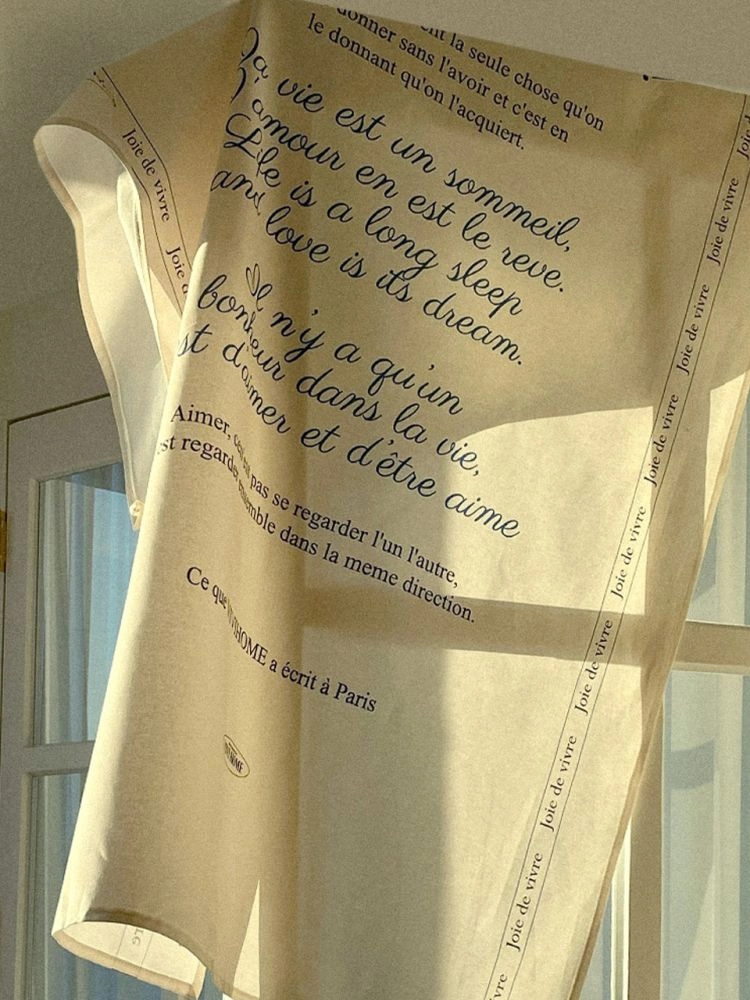 la seule chose qu'on
donner sans l'avoir et c'est en
le donnant qu'on l'acquiert.
La vie est un sommeil,
l'amour en est le reve.
Life is a long sleep
and love is its dream.
Il n'y a qu'un
bonheur dans la vie,
d'aimer et d'être aime
Aimer, pas se regarder l'un l'autre,
regarder ensemble dans la meme direction.
Ce que HOME a écrit à Paris
Joie de vivre
Joie
Joie de vivre
Joie de vivre
Joie de vivre
Joie de vivre
Joie de vivre
Joie de vivre
Joie de vivre
Joie de vivre